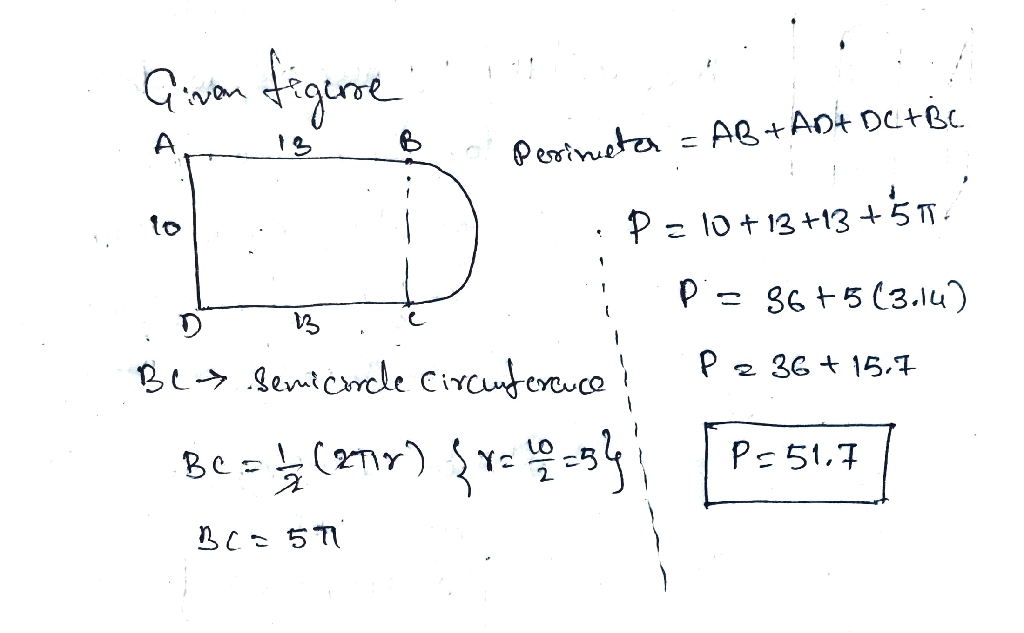 Given figure
A 13 B
10
D 13 C
BC → Semicircle circumference
BC = 1/2 (2πr) {r = 10/2 = 5}
BC = 5π
Perimeter = AB + AD + DC + BC
P = 10 + 13 + 13 + 5π
P = 36 + 5 (3.14)
P = 36 + 15.7
P = 51.7